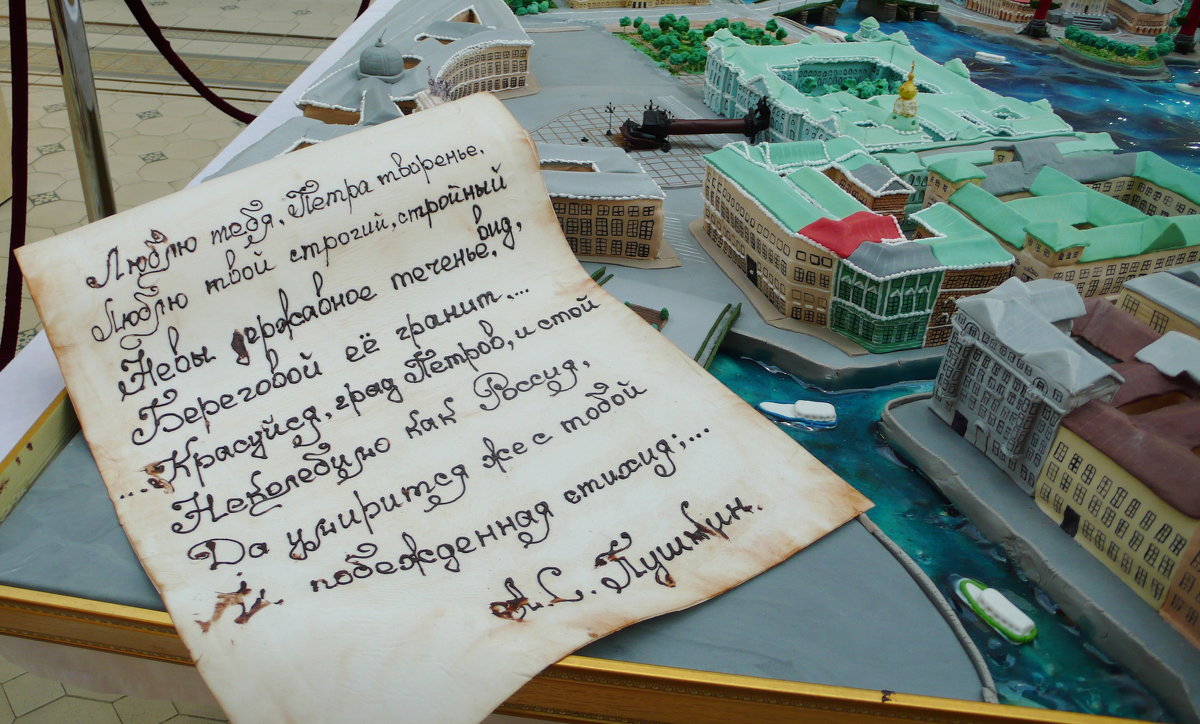 Люблю тебя, Петра творенье.
Люблю твой строгий, стройный
вид,
Невы державное теченье,
Береговой её гранит....
...Красуйся, град Петров, и стой
Неколебимо как Россия,
Да умирится же с тобой
И побежденная стихия;...
А.С. Пушкин.